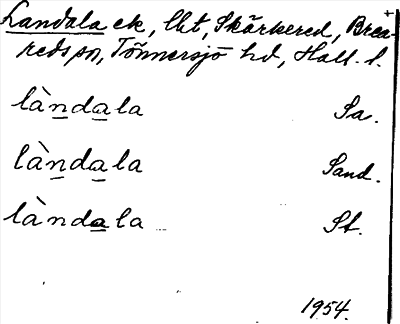 Landala ek, lht, Skärkered, Brea-
reds sn, Tönnersjö hd, Hall. l.
làndala Sa.
làndala Sand.
làndala St.
1954.